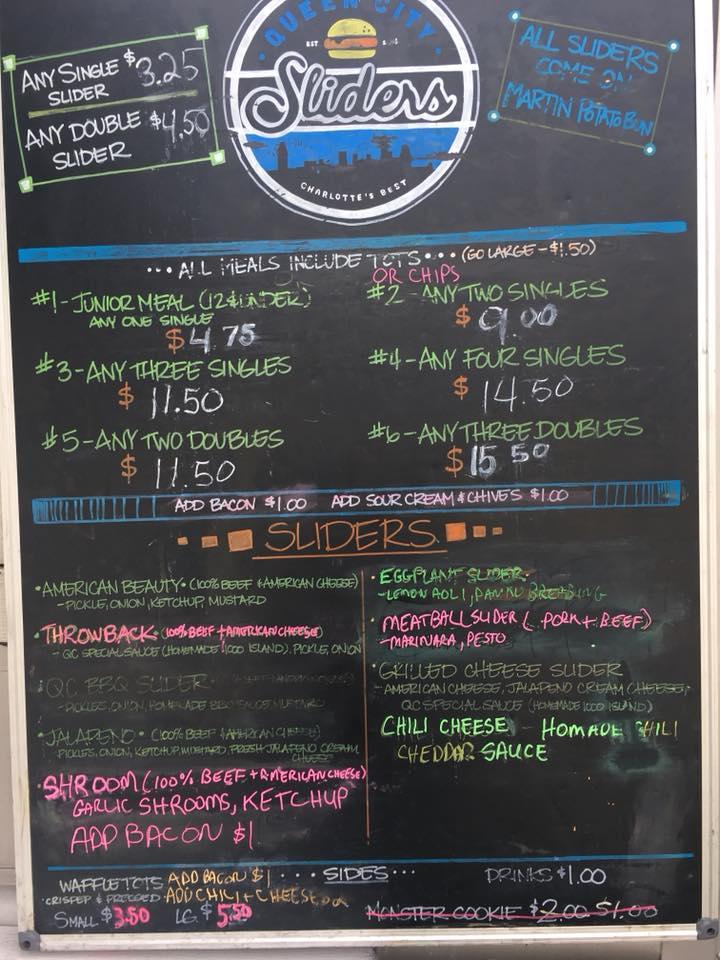 QUEEN CITY
EST
Sliders
CHARLOTTE'S BEST
ANY SINGLE $3.25
SLIDER
ANY DOUBLE $4.50
SLIDER
ALL SLIDERS
COME ON
MARTIN POTATO BUN
...ALL MEALS INCLUDE TOTS... (GO LARGE - $1.50)
OR CHIPS
#1 - JUNIOR MEAL (12 & UNDER)
ANY ONE SINGLE
$4.75
#2 - ANY TWO SINGLES
$9.00
#3 - ANY THREE SINGLES
$11.50
#4 - ANY FOUR SINGLES
$14.50
#5 - ANY TWO DOUBLES
$11.50
#6 - ANY THREE DOUBLES
$15.50
ADD BACON $1.00 ADD SOUR CREAM & CHIVES $1.00
SLIDERS
• AMERICAN BEAUTY • (100% BEEF & AMERICAN CHEESE)
- PICKLE, ONION, KETCHUP, MUSTARD
• THROWBACK (100% BEEF + AMERICAN CHEESE)
- QC SPECIAL SAUCE (HOMEMADE 1000 ISLAND), PICKLE, ONION
• QC BBQ SLIDER •
- PICKLES, ONION, HOMEMADE BBQ SAUCE, MUSTARD
• JALAPENO • (100% BEEF & AMERICAN CHEESE)
- PICKLES, ONION, KETCHUP, MUSTARD, FRESH JALAPENO CREAM
CHEESE
• SHROOM (100% BEEF + AMERICAN CHEESE)
GARLIC SHROOMS, KETCHUP
ADD BACON $1
• EGGPLANT SLIDER •
- LEMON AOLI, PANKO BREADING
• MEATBALL SLIDER (PORK + BEEF)
- MARINARA, PESTO
• GRILLED CHEESE SLIDER
- AMERICAN CHEESE, JALAPENO CREAM CHEESE,
QC SPECIAL SAUCE (HOMEMADE 1000 ISLAND)
CHILI CHEESE HOMADE CHILI
CHEDDAR SAUCE
...SIDES...
WAFFLE TOTS ADD BACON $1
• CRISPED & PRESSED • ADD CHILI + CHEESE
SMALL $3.50 LG $5.50
DRINKS $1.00
MONSTER COOKIE $2.00 $1.00